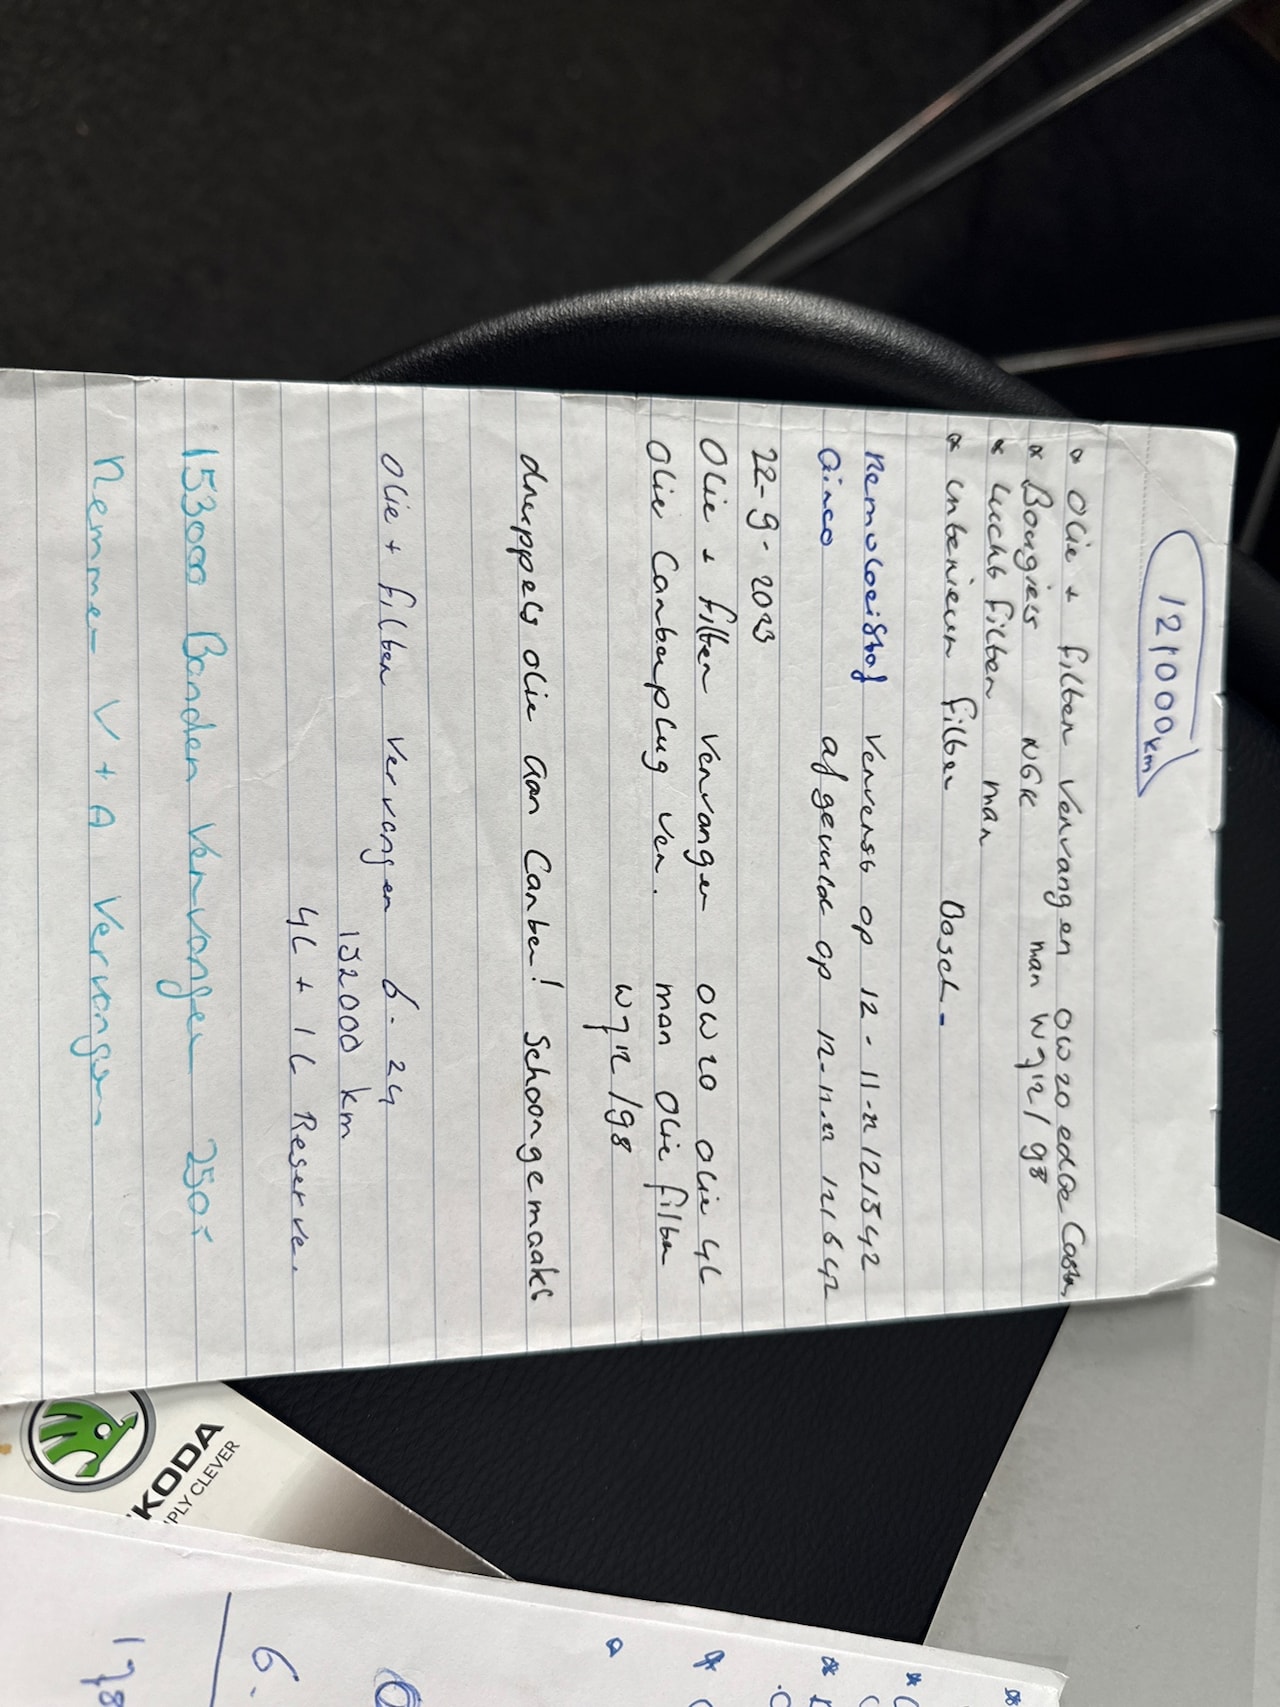 121000 km
* Olie + filter vervangen 0W20 edge Castr
* Bougies NGK man W712/98
* Lucht filter man
* interieur filter Bosch
Remvloeistof ververst op 12-11-22 121542
Airco afgevuld op 12-11-22 121642
22-9-2023
Olie + filter vervangen 0W20 olie 4L
Olie Carterplug ver. man olie filter
W712/98
druppels olie aan Carter! Schoongemaakt
Olie + filter vervangen 6-24
152000 km
4L + 1L Reserve.
153000 Banden vervangen 250,-
Remmen V + A vervangen
ŠKODA
SIMPLY CLEVER
6.
178